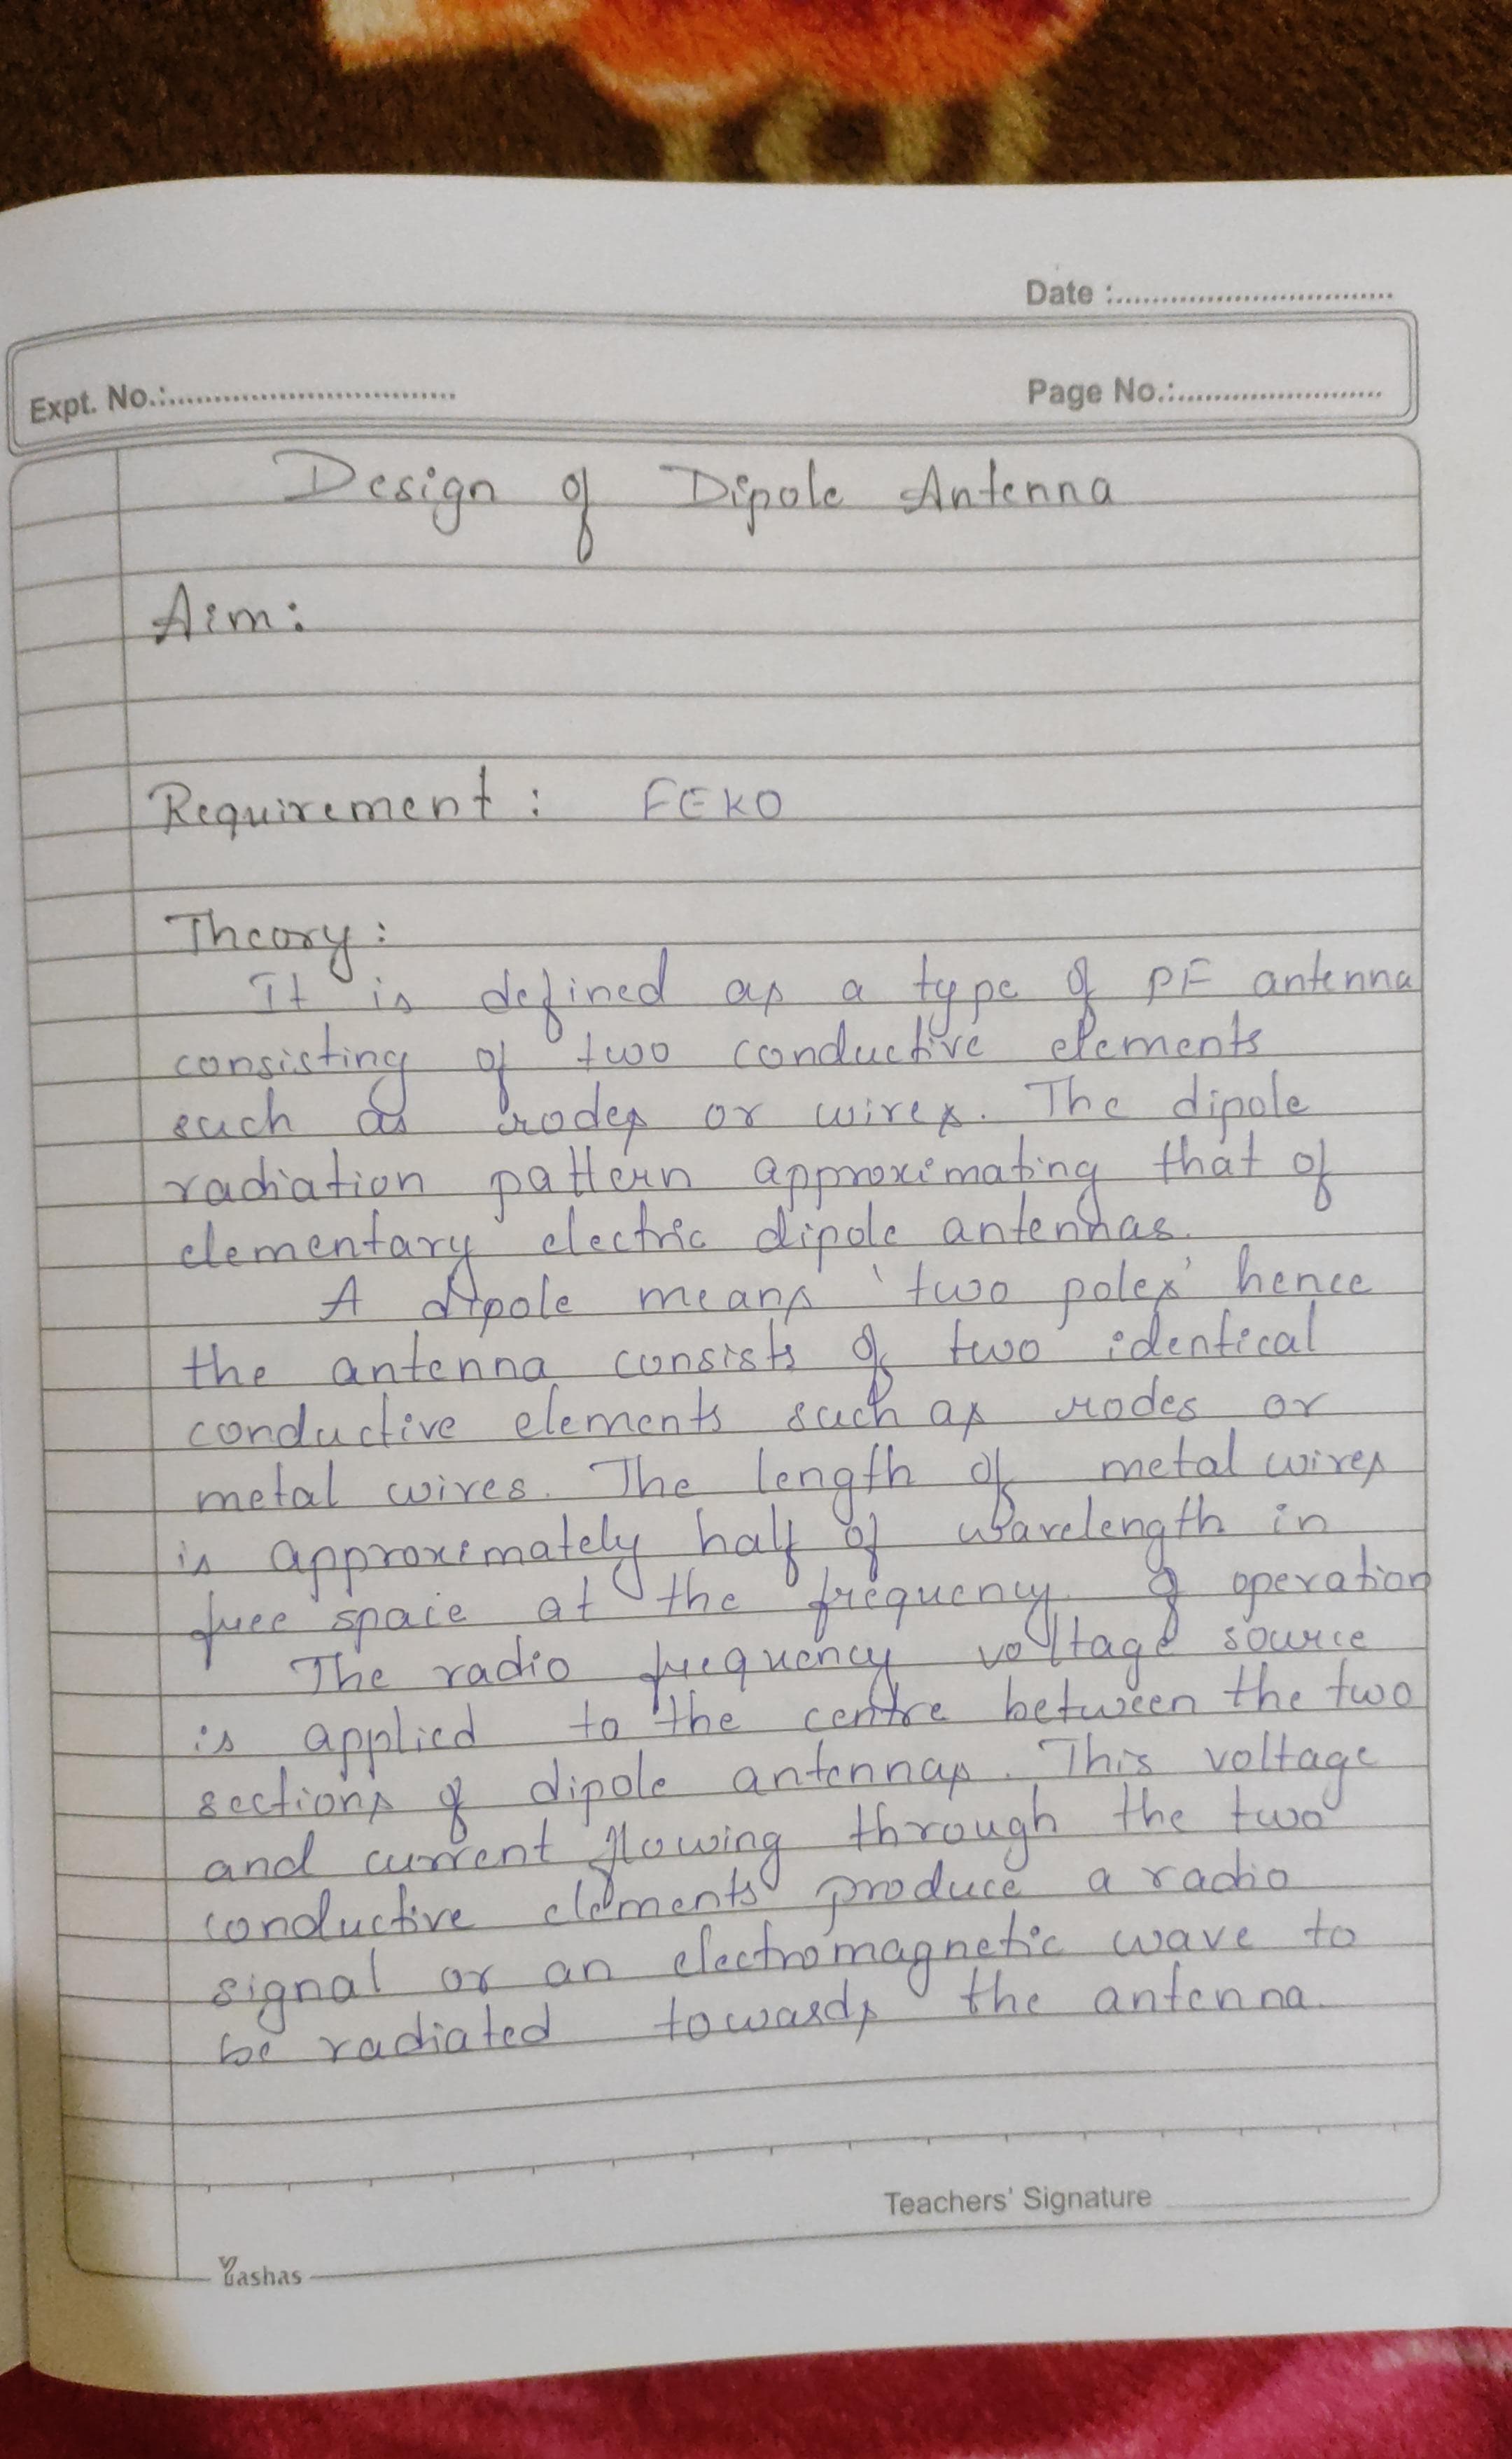 Date :
Expt. No.:
Page No.:
Design of Dipole Antenna
Aim:
Requirement : FEKO
Theory:
It is defined as a type of RF antenna
consisting of two conductive elements
such as rodes or wires. The dipole
radiation pattern approximating that of
elementary electric dipole antennas.
A dipole means 'two poles' hence
the antenna consists of two identical
conductive elements such as rodes or
metal wires. The length of metal wires
is approximately half of wavelength in
free space at the frequency of operation
The radio frequency voltage source
is applied to the centre between the two
sections of dipole antennas. This voltage
and current flowing through the two
conductive elements produce a radio
signal or an electromagnetic wave to
be radiated towards the antenna.
Teachers' Signature
Yashas